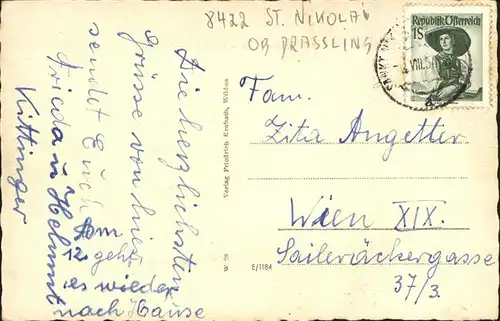 8422 ST. NIKOLAI
OB DRASSLING
Republik Österreich
1S
Die herzlichsten
Grüsse von hier
sendet Euch
Frieda u Helmut
Kittinger
Am
12. geht
es wieder
nach Hause
Verlag Friedrich Krobath, Wildon
W 98
E/1184
Fam.
Zita Angetter
Wien XIX.
Saileräckergasse
37/3.